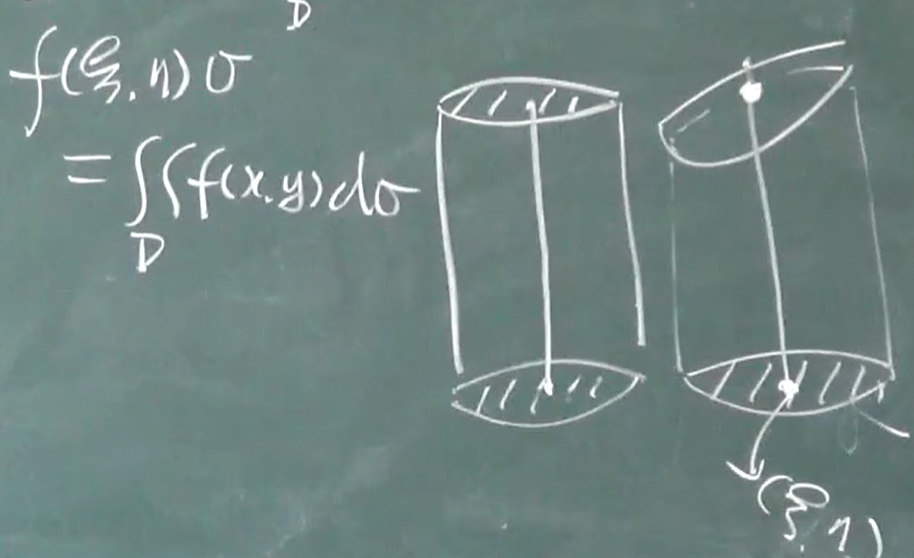 D
f(ξ,η)σ
=∬f(x,y)dσ
D
(ξ,η)